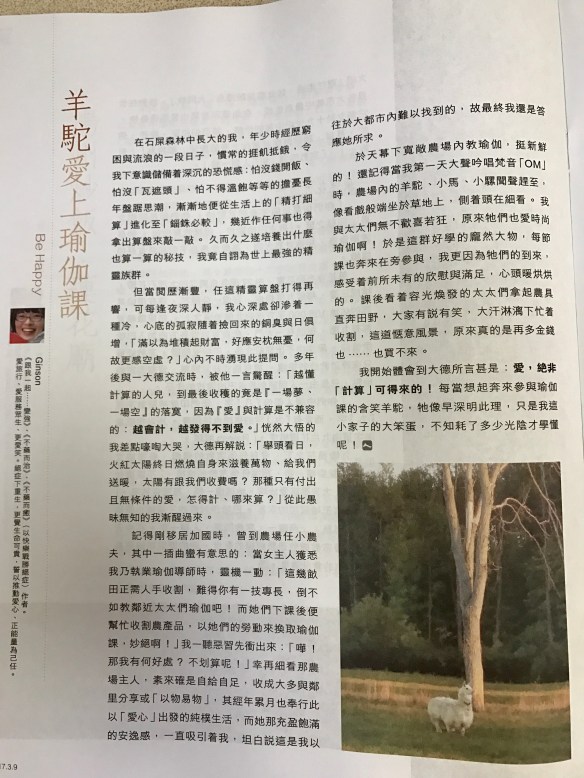 羊駝愛上瑜伽課
Be Happy
Ginson
《跟我一起，變強》、《不藥而治》、《不藥而癒》、《以快樂戰勝絕症》作者。
愛旅行、愛服務眾生、更愛笑。絕症下重生，更覺生命可貴，誓以推動愛心、正能量為己任。
在石屎森林中長大的我，年少時經歷窮
困與流浪的一段日子，慣常的捱飢抵餓，令
我下意識儲備着深沉的恐慌感：怕沒錢開飯、
怕沒「瓦遮頭」、怕不得溫飽等等的擔憂長
年盤踞思潮，漸漸地便從生活上的「精打細
算」進化至「錙銖必較」，幾近作任何事也得
拿出算盤來敲一敲。久而久之遂培養出什麼
也算一算的秘技，我竟自詡為世上最強的精
靈族群。
但當閱歷漸豐，任這精靈算盤打得再
響，可每逢夜深人靜，我心深處卻滲着一
種冷，心底的孤寂隨着撿回來的銅臭與日俱
增，「滿以為堆積起財富，好應安枕無憂，何
故更感空虛？」心內不時湧現此提問。多年
後與一大德交流時，被他一言驚醒：「越懂
計算的人兒，到最後收穫的竟是『一場夢、
一場空』的落寞，因為『愛』與計算是不兼容
的：越會計，越發得不到愛。」恍然大悟的
我差點嚎啕大哭，大德再解說：「舉頭看日，
火紅太陽終日燃燒自身來滋養萬物、給我們
送暖，太陽有跟我們收費嗎？那種只有付出
且無條件的愛，怎得計、哪來算？」從此愚
昧無知的我漸醒過來。
記得剛移居加國時，曾到農場任小農
夫，其中一插曲蠻有意思的：當女主人獲悉
我乃執業瑜伽導師時，靈機一動：「這幾畝
田正需人手收割，難得你有一技專長，倒不
如教鄰近太太們瑜伽吧！而她們下課後便
幫忙收割農產品，以她們的勞動來換取瑜伽
課，妙絕啊！」我一聽惡習先衝出來：「嘩！
那我有何好處？不划算呢！」幸再細看那農
場主人，素來確是自給自足，收成大多與鄰
里分享或「以物易物」，其經年累月也奉行此
以「愛心」出發的純樸生活，而她那充盈飽滿
的安逸感，一直吸引着我，坦白說這是我以
往於大都市內難以找到的，故最終我還是答
應她所求。
於天幕下寬敞農場內教瑜伽，挺新鮮
的！還記得當我第一天大聲吟唱梵音「OM」
時，農場內的羊駝、小馬、小騾聞聲趕至，
像看戲般端坐於草地上，側着頭在細看。我
與太太們無不歡喜若狂，原來牠們也愛時尚
瑜伽啊！於是這群好學的龐然大物，每節
課也奔來在旁參與，我更因為牠們的到來，
感受着前所未有的欣慰與滿足，心頭暖烘烘
的。課後看着容光煥發的太太們拿起農具
直奔田野，大家有說有笑，大汗淋漓下忙着
收割，這道愜意風景，原來真的是再多金錢
也⋯⋯也買不來。
我開始體會到大德所言甚是：愛，絕非
「計算」可得來的！每當想起奔來參與瑜伽
課的含笑羊駝，牠像早深明此理，只是我這
小家子的大笨蛋，不知耗了多少光陰才學懂
呢！
17.3.9